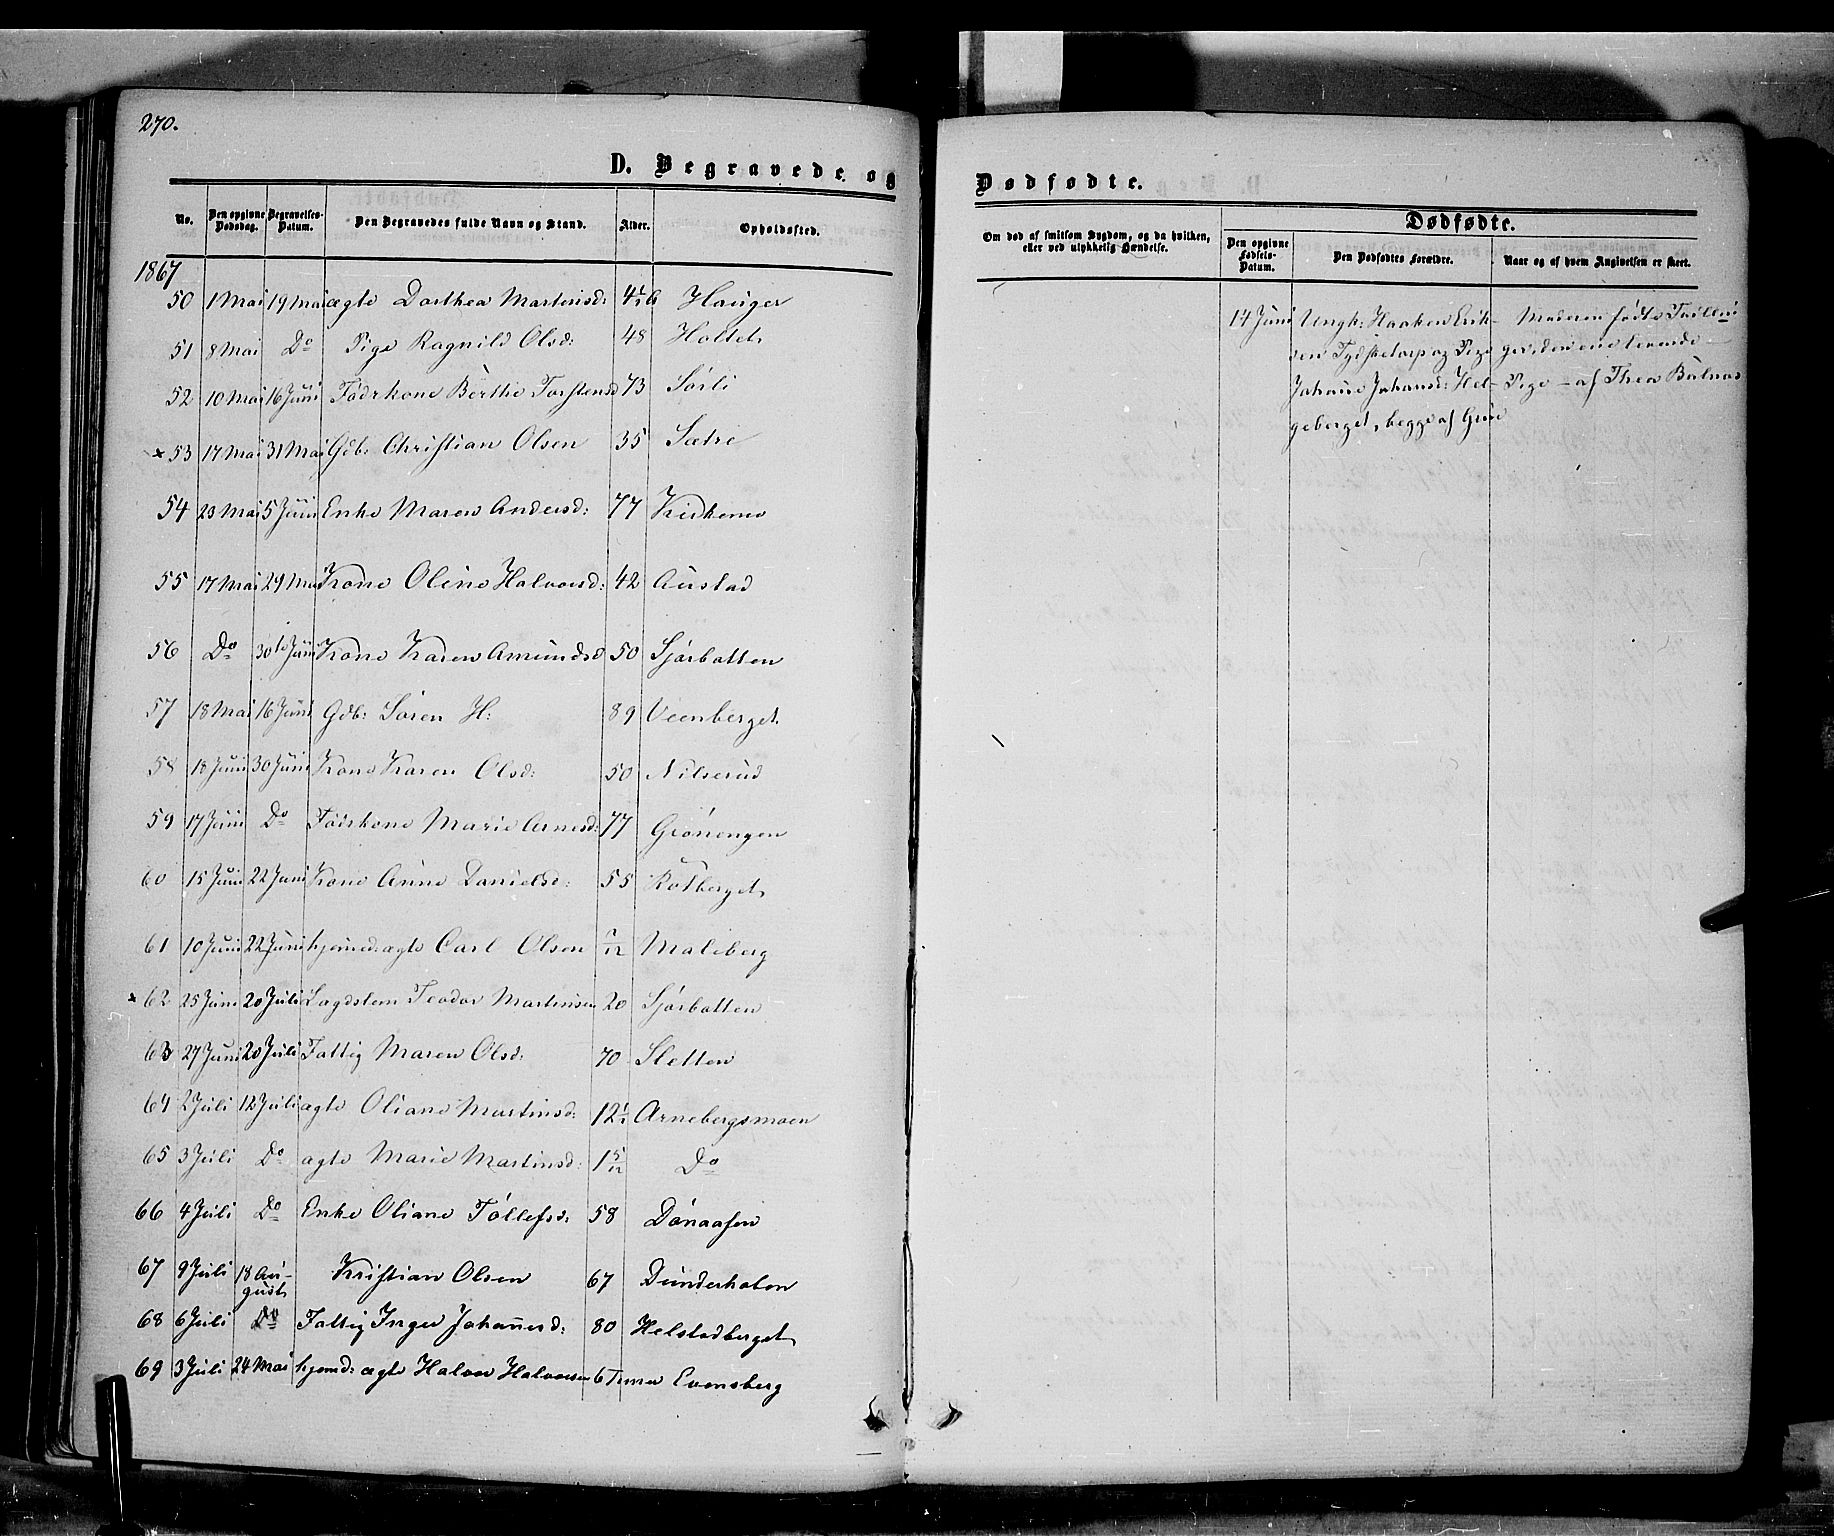 270.
D. Begravede og Dødfødte.
No. Den opgivne Dødsdag. Begravelses-Datum. Den Begravedes fulde Navn og Stand. Alder. Opholdssted.
1867
50 1 Mai 19 Mai ægte Dorthea Martinsd: Hauger
51 8 Mai Do Pige Ragnild Olsd: 48 Holtet
52 10 Mai 16 Juni Föderkone Berthe Torstensd 73 Sörli
× 53 17 Mai 31 Mai Gdb: Christian Olsen 35 Sætre
54 23 Mai 5 Juni Enke Maren Andersd: 77 Kirkemo
55 17 Mai 29 Mai Kone Oline Halvorsd: 42 Austad
56 Do 30te Juni Kone Karen Amundsd 50 Sjörbotten
57 18 Mai 16 Juni Gdb: Sören H: 89 Veenberget
58 18 Juni 30 Juni Kone Karen Olsd: 50 Nilserud
59 17 Juni Do Föderkone Marie Arnesd: 77 Grönengen
60 15 Juni 22 Juni Kone Anne Danielsd: 55 Rotberget
61 10 Juni 22 Juni hjemmed: ægte Carl Olsen Maliberg
× 62 25 Juni 20 Juli Lægdslem Teodor Martinsen 20 Sjörbotten
63 27 Juni 20 Juli Fattig Maren Olsd: 70 Sletten
64 2 Juli 12 Juli ægte Oliane Martinsd: 12½ Arnebergsmoen
65 3 Juli Do ægte Marie Martinsd: 1 5/12 Do
66 4 Juli Do Enke Oliane Töllefsd: 58 Dönaasen
67 9 Juli 18 Au-
gust Kristian Olsen 67 Dunderholen
68 6 Juli Do Fattig Inger Johannesd: 80 Helstadberget
69 3 Juli 24 Mai hjemd: ægte Halvor Halvorsen 6 Timer Evensberg
Om død af smitsom Sygdom, og da hvilken,
eller ved ulykkelig Hændelse.
Dødfødte.
Den opgivne Fødsels-Datum. Den Dødfødtes Forældre. Naar og af hvem Angivelsen er skeet.
14 Juni Ungk: Haaken Erik- Moderen födte Tvillin
sen Tydsketorp og Pige ger, den ene levende
Johanne Johansd: Hel- Pige – af Thea Bulnæs
geberget, begge af Grue